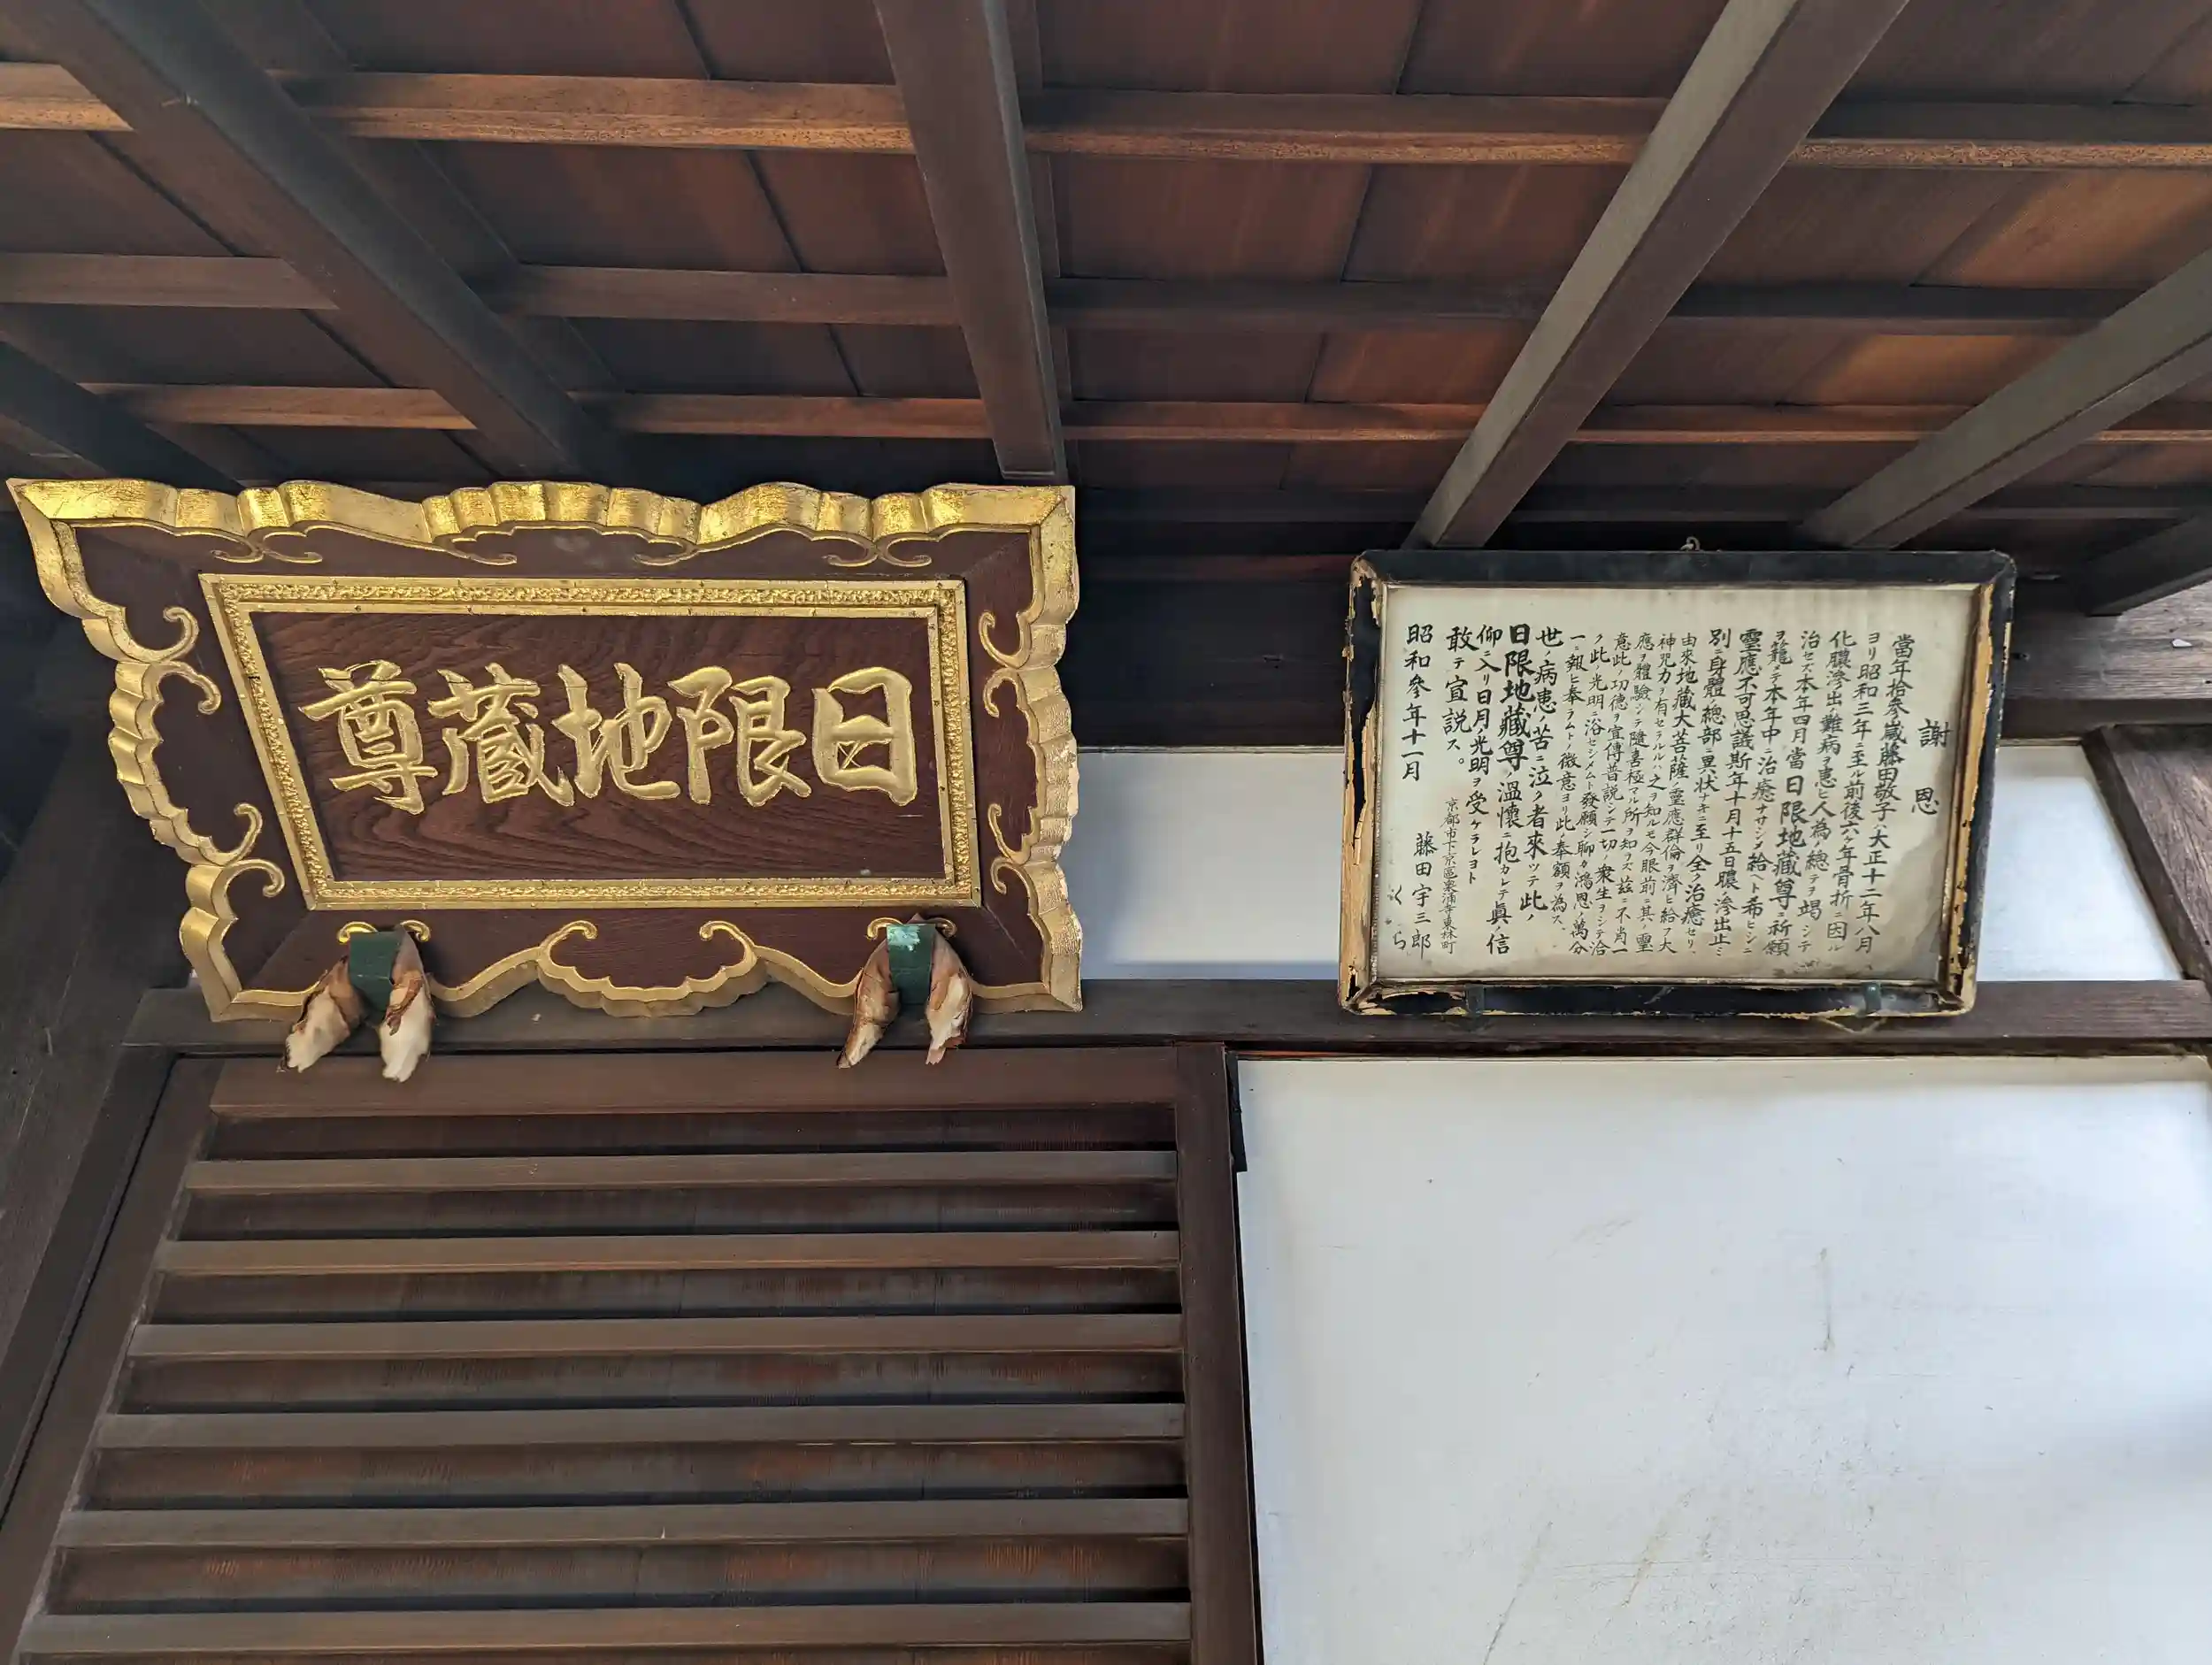 日限地蔵尊
謝恩
當年拾参歳藤田敬子ハ大正十二年八月
ヨリ昭和三年ニ至ル前後六ケ年骨折ニ因ル
化膿滲出ノ難病ヲ患ヒ人為ノ總テヲ竭シテ
治セズ本年四月當日限地藏尊ニ祈願
ヲ籠テ本年中ニ治癒ナサシメ給ヘト希ヒシニ
靈應不可思議斯年十月十五日膿ノ滲出止ミ
別ニ身體ノ總部ニ異状ナキニ至リ全ク治癒セリ
由來地藏大菩薩ノ靈應群倫ヲ濟ヒ給フ大
神咒力ヲ有セラルルハ之ヲ知ルモ今眼前ニ其ノ靈
應ヲ體驗シテ隨喜極マル所ヲ知ラズ茲ニ不肖一
意此ノ功德ヲ宣傳普説シテ一切ノ衆生ヲシテ洽
ク此ノ光明ニ浴セシメムト發願シ聊カ鴻恩ノ萬分
一ニ報ヒ奉ラムトノ微意ヨリ此ノ奉額ヲ為ス、
世ノ病患ノ苦ニ泣ク者來ツテ此ノ
日限地藏尊ノ溫懷ニ抱カレテ眞ノ信
仰ニ入リ日月ノ光明ヲ受ケラレヨト
敢テ宣説ス。
京都市下京區泉涌寺東林町
昭和參年十一月 藤田宇三郎